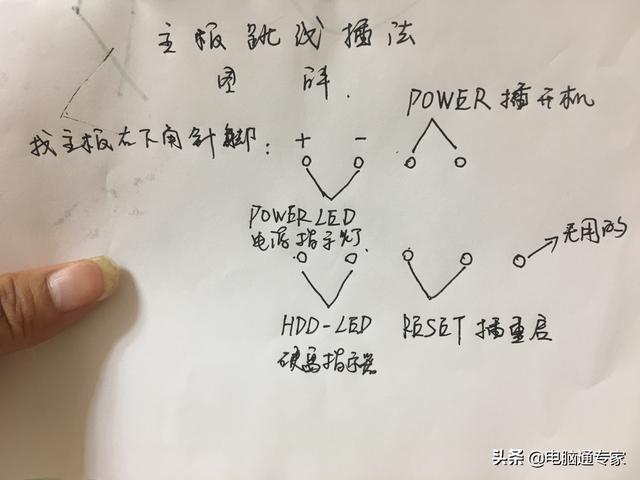 主板跳线插法
图解.
POWER插开机
找主板右下角针脚:
+ -
POWER LED
电源指示灯.
无用的
HDD-LED
硬盘指示器
RESET 插重启
头条 @电脑通专家